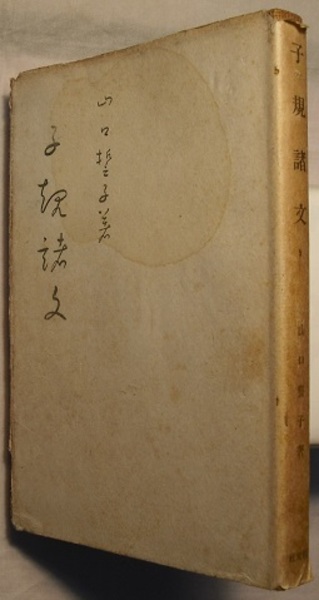 山口誓子著
子規諸文
子規諸文
山口誓子著